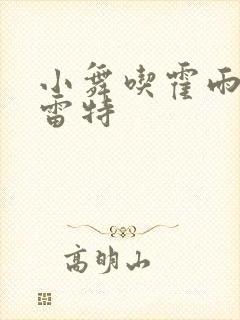 小舞喫霍雨
雷特
高明山